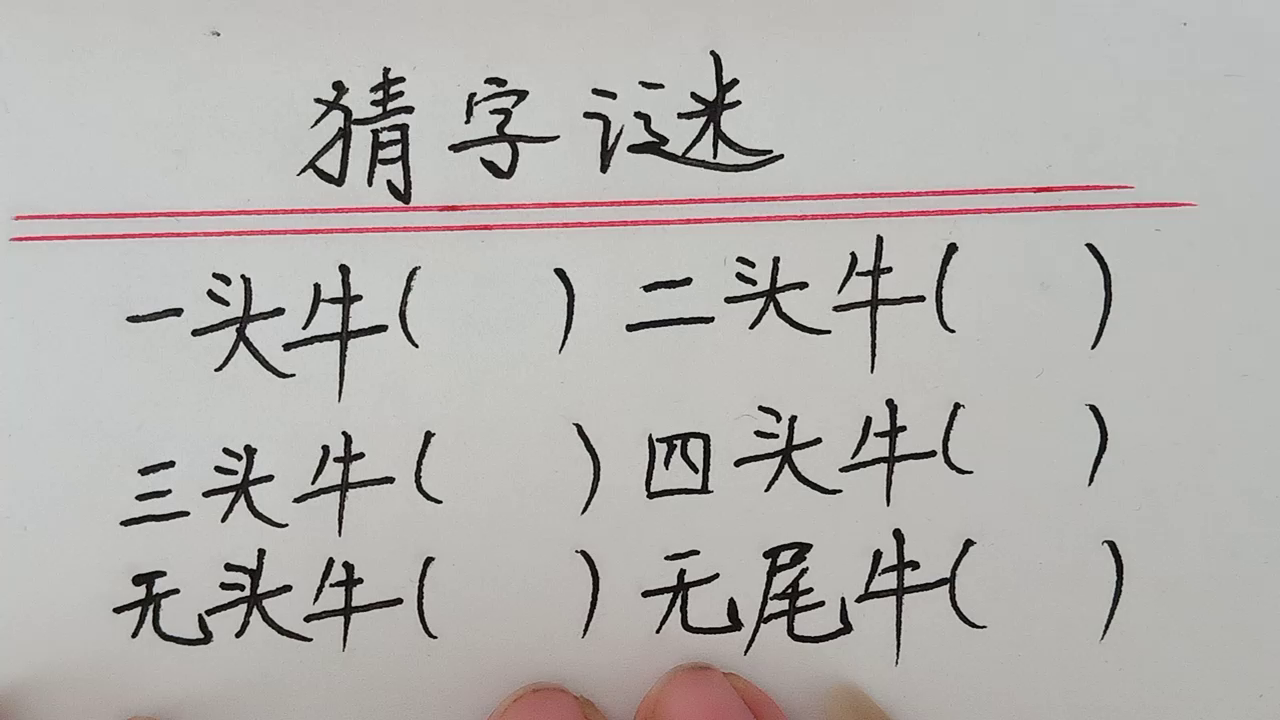 猜字谜
一头牛( ) 二头牛( )
三头牛( ) 四头牛( )
无头牛( ) 无尾牛( )